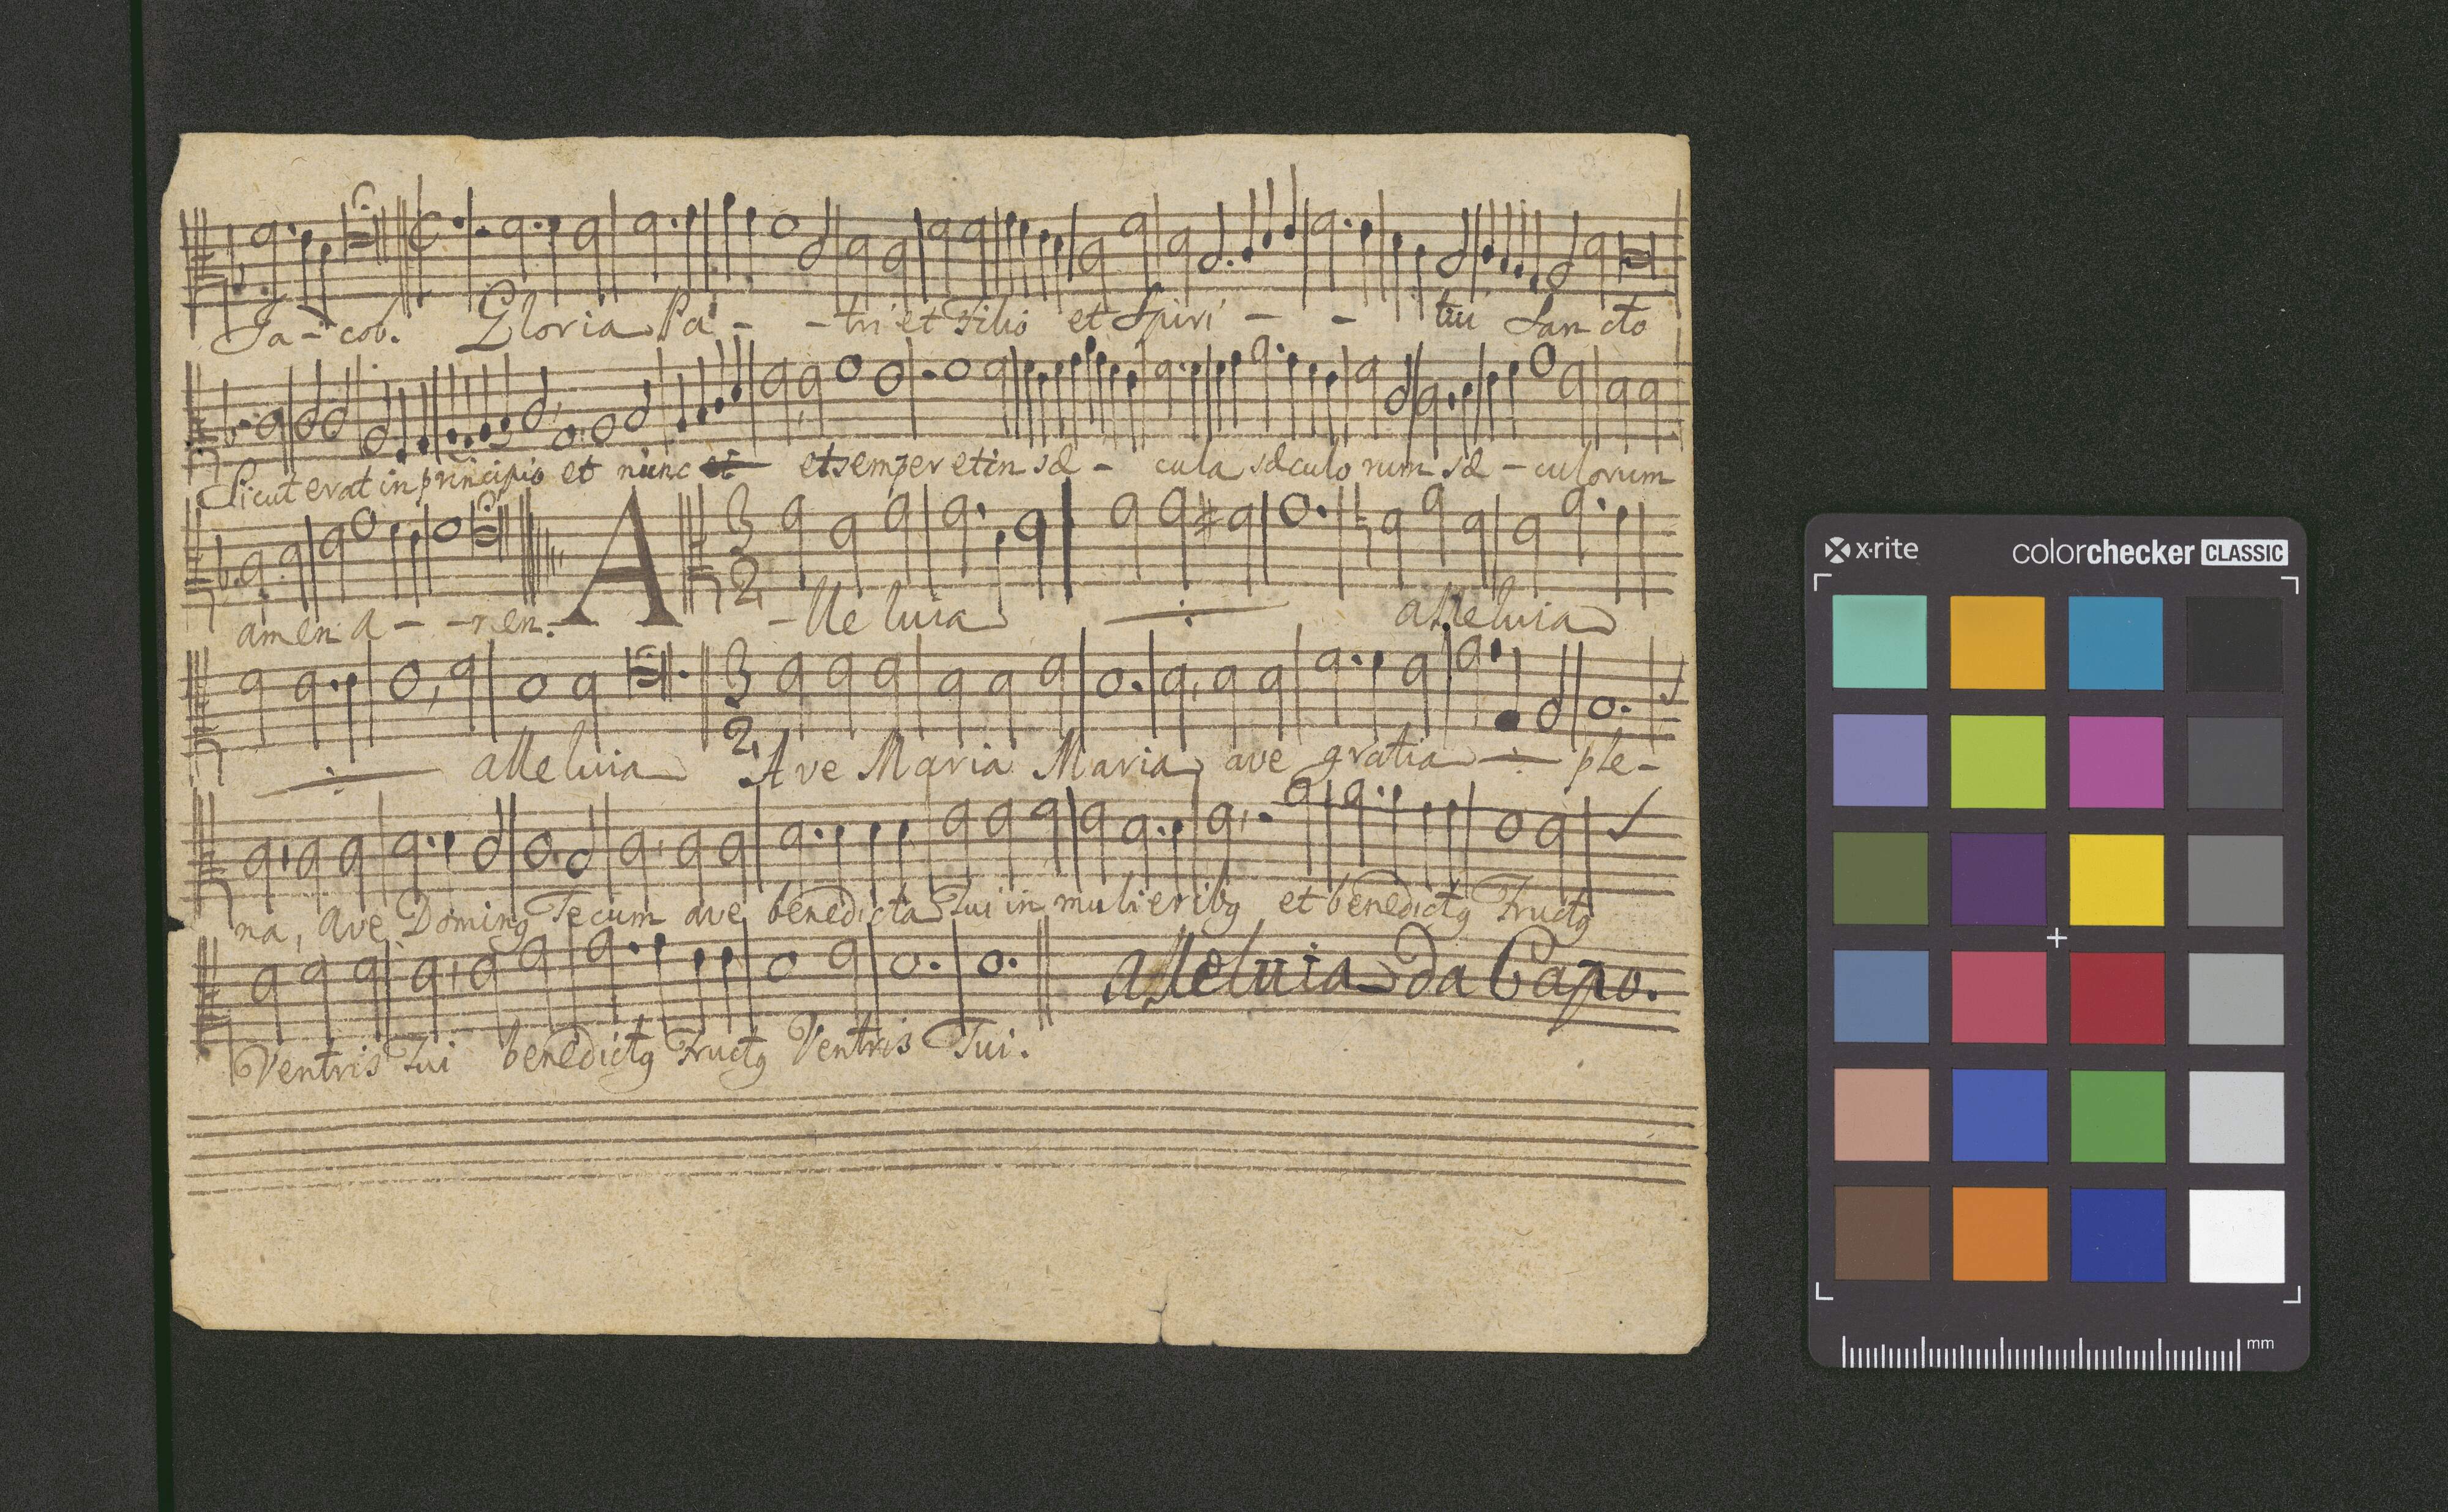 Ja - cob. Gloria Pa - - tri et Filio et Spiri - - tui Sancto
Sicut erat in principio et nunc et et semper et in sæ - cula sæculorum sæ - culorum
amen a - - men. A - lle luia alleluia
alleluia Ave Maria Maria ave gratia ple -
na, ave Dominꝰ Tecum ave benedicta Tui in mulieribꝰ et benedictꝰ Fructꝰ
alleluia da Capo.
Ventris Tui benedictꝰ Fructꝰ Ventris Tui.
x·rite colorchecker CLASSIC
mm